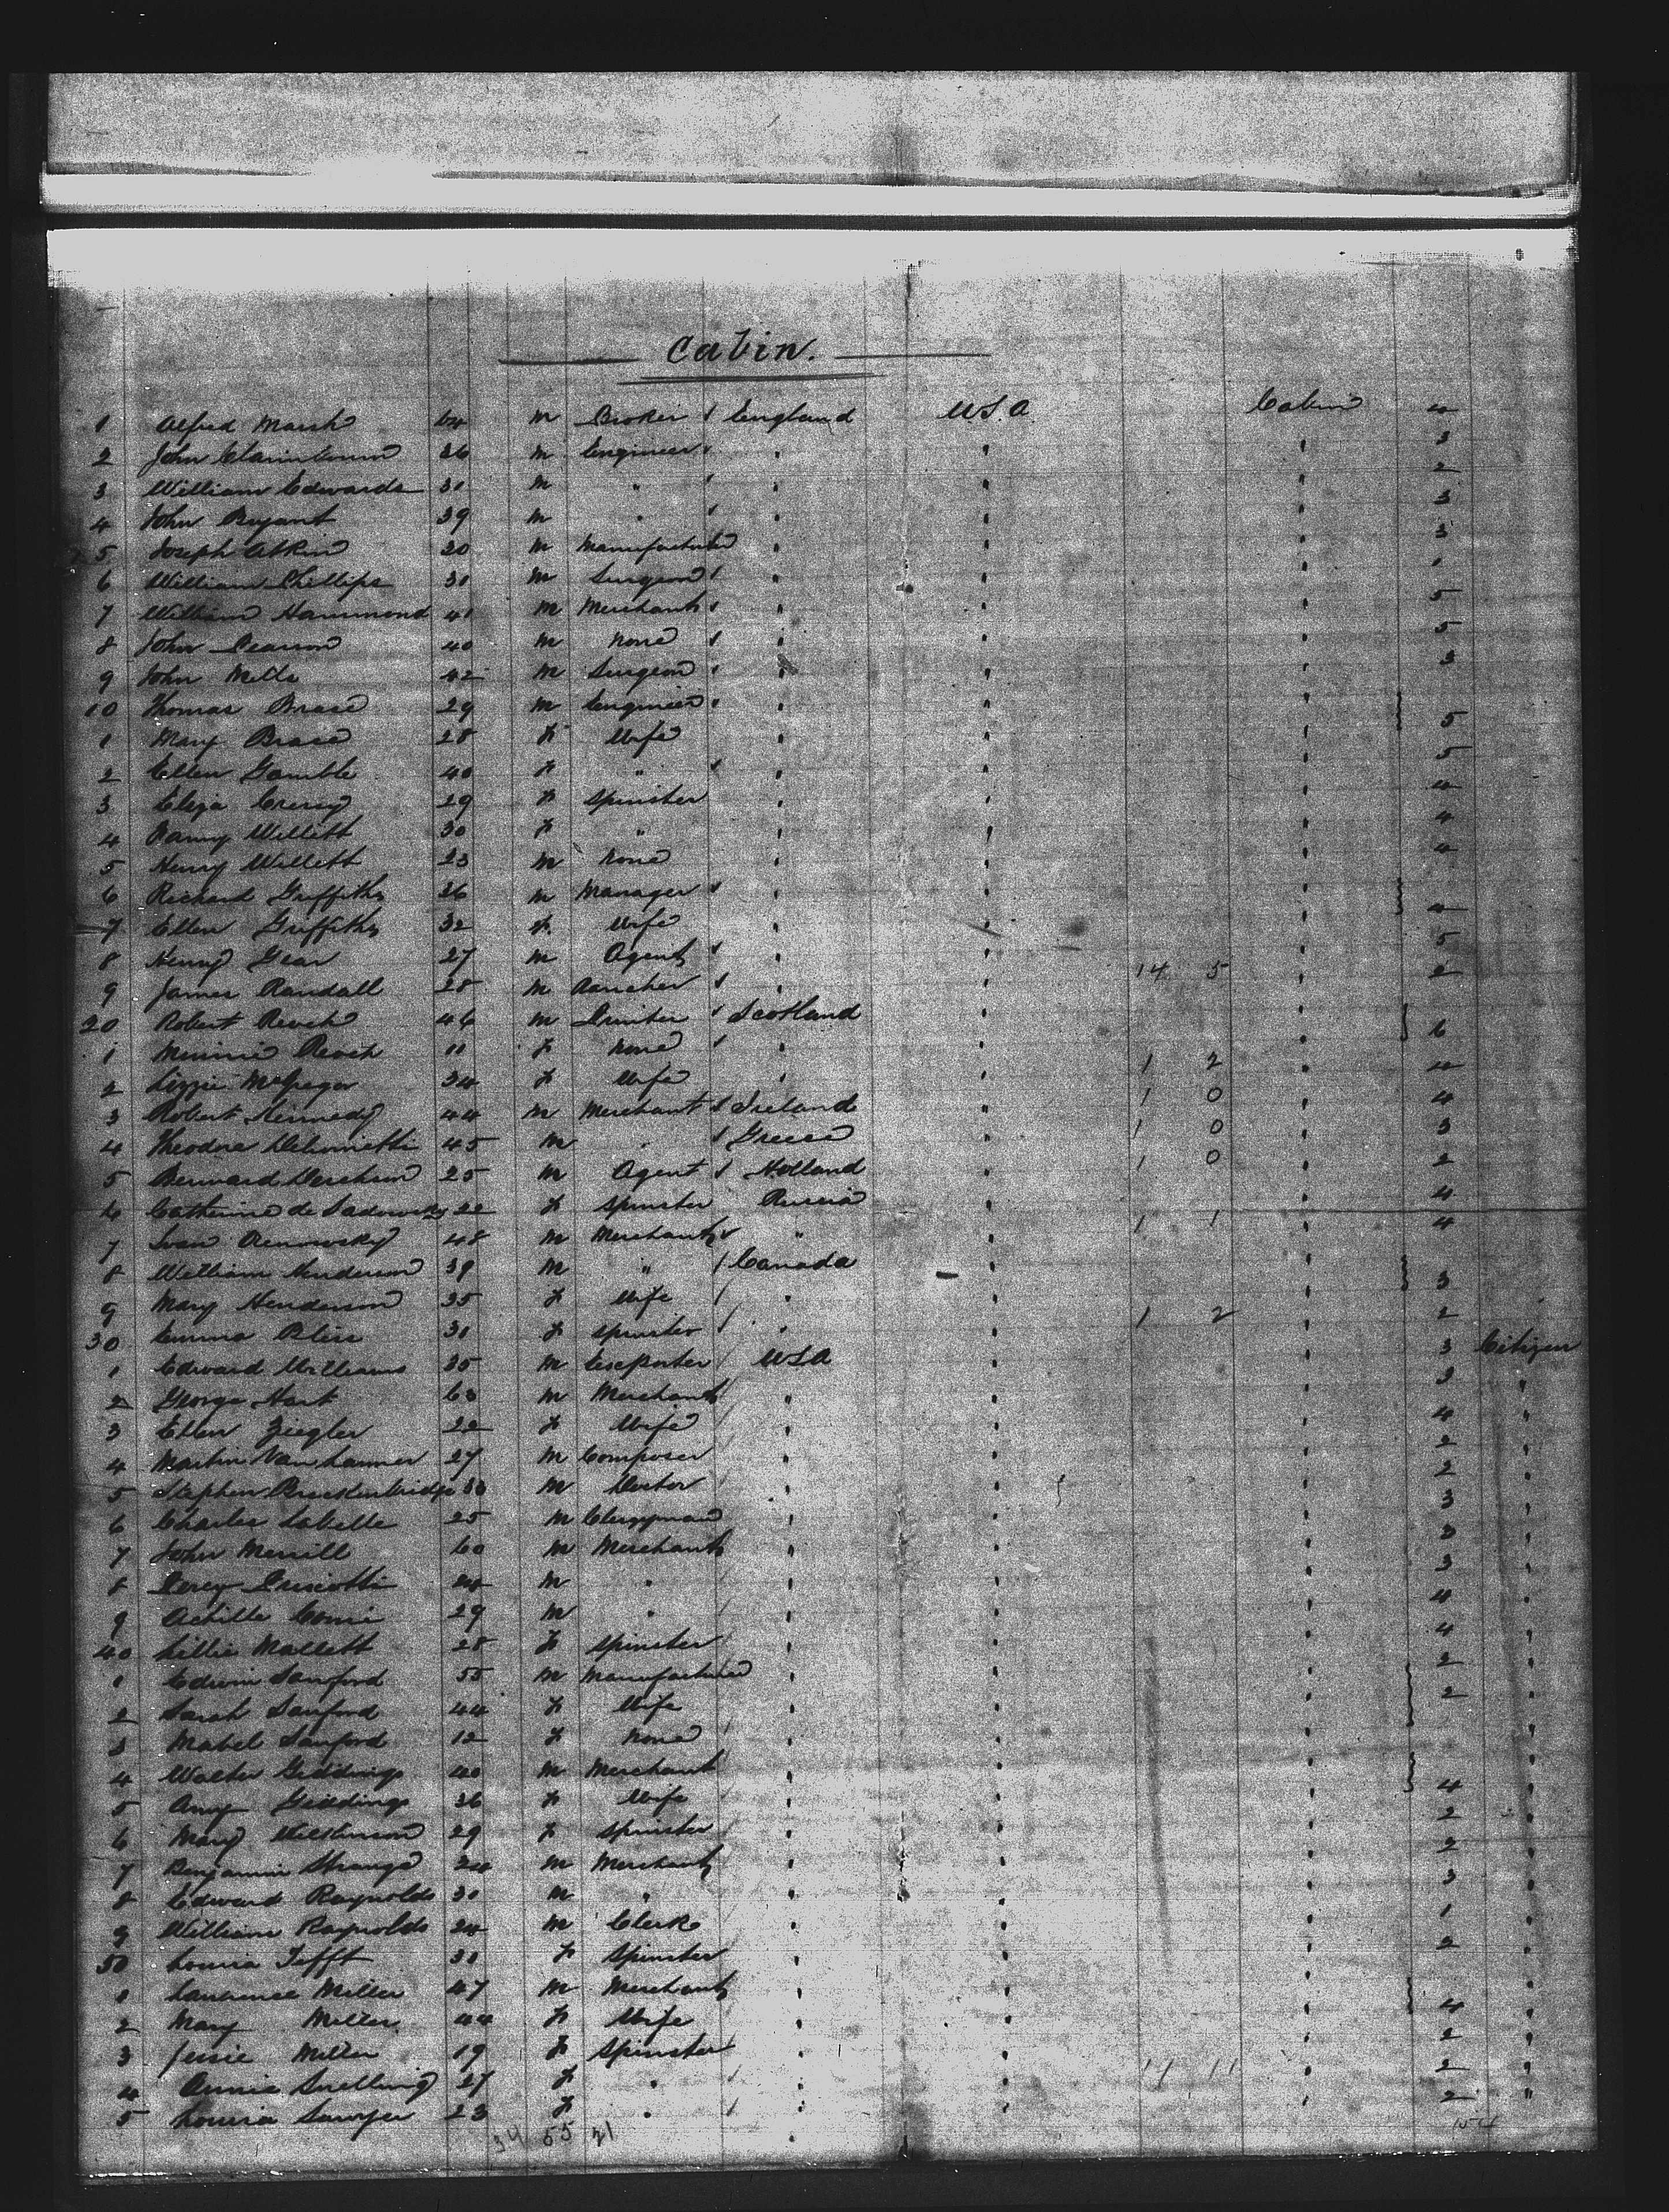 Cabin.
1 Alfred Marsh 64 m Broker England U.S.A. Cabin 4
2 John 36 m Engineer " " " 3
3 William Edwards 31 m " " " " 2
4 John Bryant 39 m " " " " 3
5 Joseph Atkin 20 m " " " 3
6 William Phillips 31 m Surgeon " " " 1
7 William Hammond 41 m Merchant " " " 5
8 John Pearson 40 m None " " " 5
9 John Mills 42 m Surgeon " " " 3
10 Thomas 29 m Engineer " " "
1 Mary 28 f Wife " " " 5
2 Ellen Gamble 40 f " " " " 5
3 Eliza 29 f Spinster " " " 4
4 Fanny Willett 30 f " " " " 4
5 Henry Willett 23 m None " " " 4
6 Richard Griffiths 36 m Manager " " "
7 Ellen Griffiths 32 f Wife " " " 4
8 Henry Gear 27 m Agent " " " 5
9 James Randall 28 m Rancher " " 14 5 " 2
20 Robert 46 m Printer Scotland " "
1 Minnie 11 f None " " " 6
2 Lizzie McGregor 34 f Wife " " 1 2 " 4
3 Robert Kennedy 44 m Merchant Ireland " 1 0 " 4
4 Theodore 45 m " Greece " 1 0 " 3
5 Bernard 25 m Agent Holland " 1 0 " 2
6 Catherine de Sadowsky 22 f Spinster Russia " " 4
7 Ivan 48 m Merchant " " 1 1 " 4
8 William Henderson 39 m " Canada " "
9 Mary Henderson 35 f Wife " " " 3
30 Emma Bliss 31 f Spinster " " 1 2 " 2
1 Edward Williams 35 m USA " " 3 Citizen
2 George Hart 63 m Merchant " " " 2 "
3 Ellen Ziegler 22 f Wife " " " 4 "
4 Martin Van 27 m Composer " " " 2 "
5 Stephen Breckenridge m Doctor " " " 2 "
6 Charles Labelle 25 m Clergyman " " " 3 "
7 John Merrill 60 m Merchant " " " 3 "
8 Percy 24 m " " " " 3 "
9 Achille 29 m " " " " 4 "
40 Lillie Mallett 28 f Spinster " " " 4 "
1 Edwin Sanford 55 m " " " 2 "
2 Sarah Sanford 44 f Wife " " " 2 "
3 Mabel Sanford 12 f None " " " "
4 Walter Giddings 40 m Merchant " " " "
5 Amy Giddings 36 f Wife " " " 4 "
6 Mary Wilkinson 29 f Spinster " " " 2 "
7 Benjamin Strange 24 m Merchant " " " 2 "
8 Edward Raynolds 31 m " " " " 3 "
9 William Raynolds 24 m Clerk " " " 1 "
50 Louisa Tefft 31 f Spinster " " " 2 "
1 Laurence Miller 47 m Merchant " " " "
2 Mary Miller 44 f Wife " " " 4 "
3 Jessie Miller 19 f Spinster " " " 2 "
4 Annie Snelling 27 f " " " 11 11 " 2 "
5 Louisa Sawyer 23 f " " " " 2 "
34 55 21 154